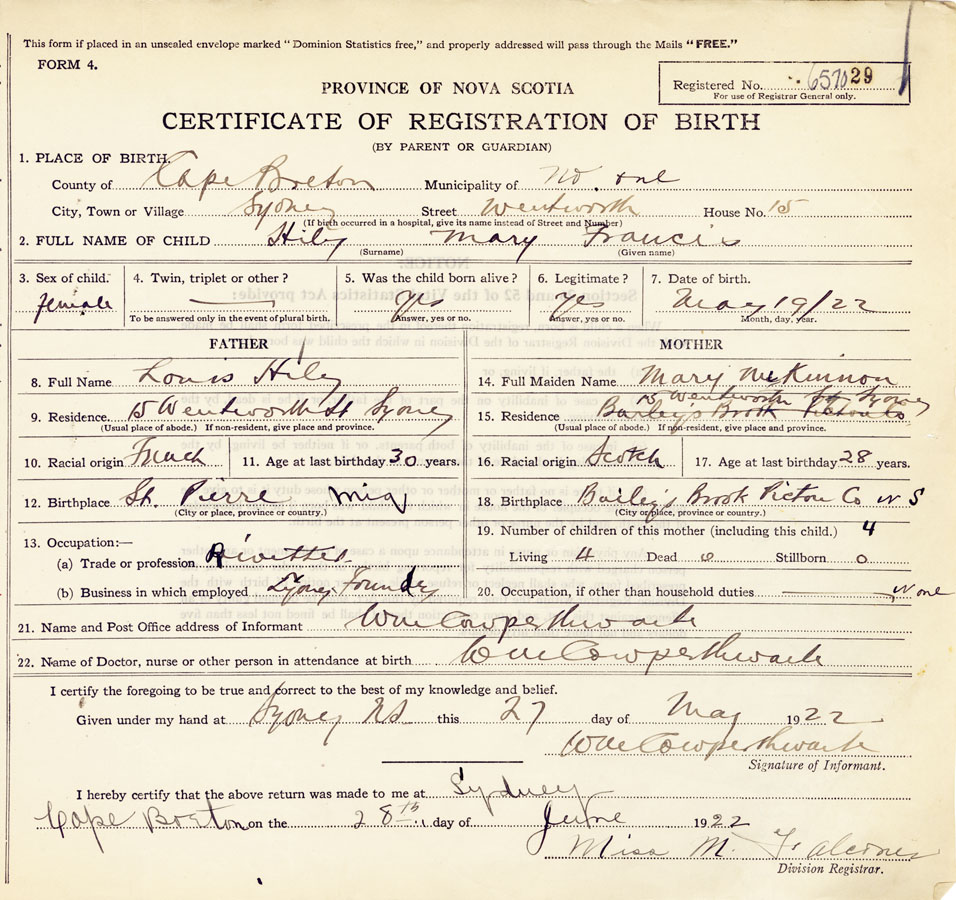 This form if placed in an unsealed envelope marked "Dominion Statistics free," and properly addressed will pass through the Mails "FREE."
FORM 4.
Registered No. 657029
For use of Registrar General only.
PROVINCE OF NOVA SCOTIA
CERTIFICATE OF REGISTRATION OF BIRTH
(BY PARENT OR GUARDIAN)
1. PLACE OF BIRTH.
County of Cape Breton Municipality of No. one
City, Town or Village Sydney Street Wentworth House No. 15
(If birth occurred in a hospital, give its name instead of Street and Number)
2. FULL NAME OF CHILD Hily Mary Francis
(Surname) (Given name)
3. Sex of child. 4. Twin, triplet or other? 5. Was the child born alive? 6. Legitimate? 7. Date of birth.
female Yes Yes May 19/22
To be answered only in the event of plural birth. Answer, yes or no. Answer, yes or no. Month, day, year.
FATHER MOTHER
8. Full Name Louis Hily 14. Full Maiden Name Mary McKinnon
15 Wentworth St Sydney
9. Residence. 15 Wentworth St Sydney 15. Residence Bailey's Brook Pictou Co
(Usual place of abode.) If non-resident, give place and province. (Usual place of abode.) If non-resident, give place and province.
10. Racial origin French 11. Age at last birthday 30 years. 16. Racial origin Scotch 17. Age at last birthday 28 years.
12. Birthplace St. Pierre Miq 18. Birthplace Bailey's Brook Pictou Co N S
(City or place, province or country.) (City or place, province or country.)
19. Number of children of this mother (including this child.) 4
13. Occupation:—
(a) Trade or profession Rivetter Living 4 Dead 0 Stillborn 0
(b) Business in which employed Sydney Foundry 20. Occupation, if other than household duties None
21. Name and Post Office address of Informant Wm Cowperthwaite
22. Name of Doctor, nurse or other person in attendance at birth Wm Cowperthwaite
I certify the foregoing to be true and correct to the best of my knowledge and belief.
Given under my hand at Sydney NS this 27 day of May 1922
Wm Cowperthwaite
Signature of Informant.
I hereby certify that the above return was made to me at Sydney
Cape Breton on the 28th day of June 1922
Miss M. Falconer
Division Registrar.